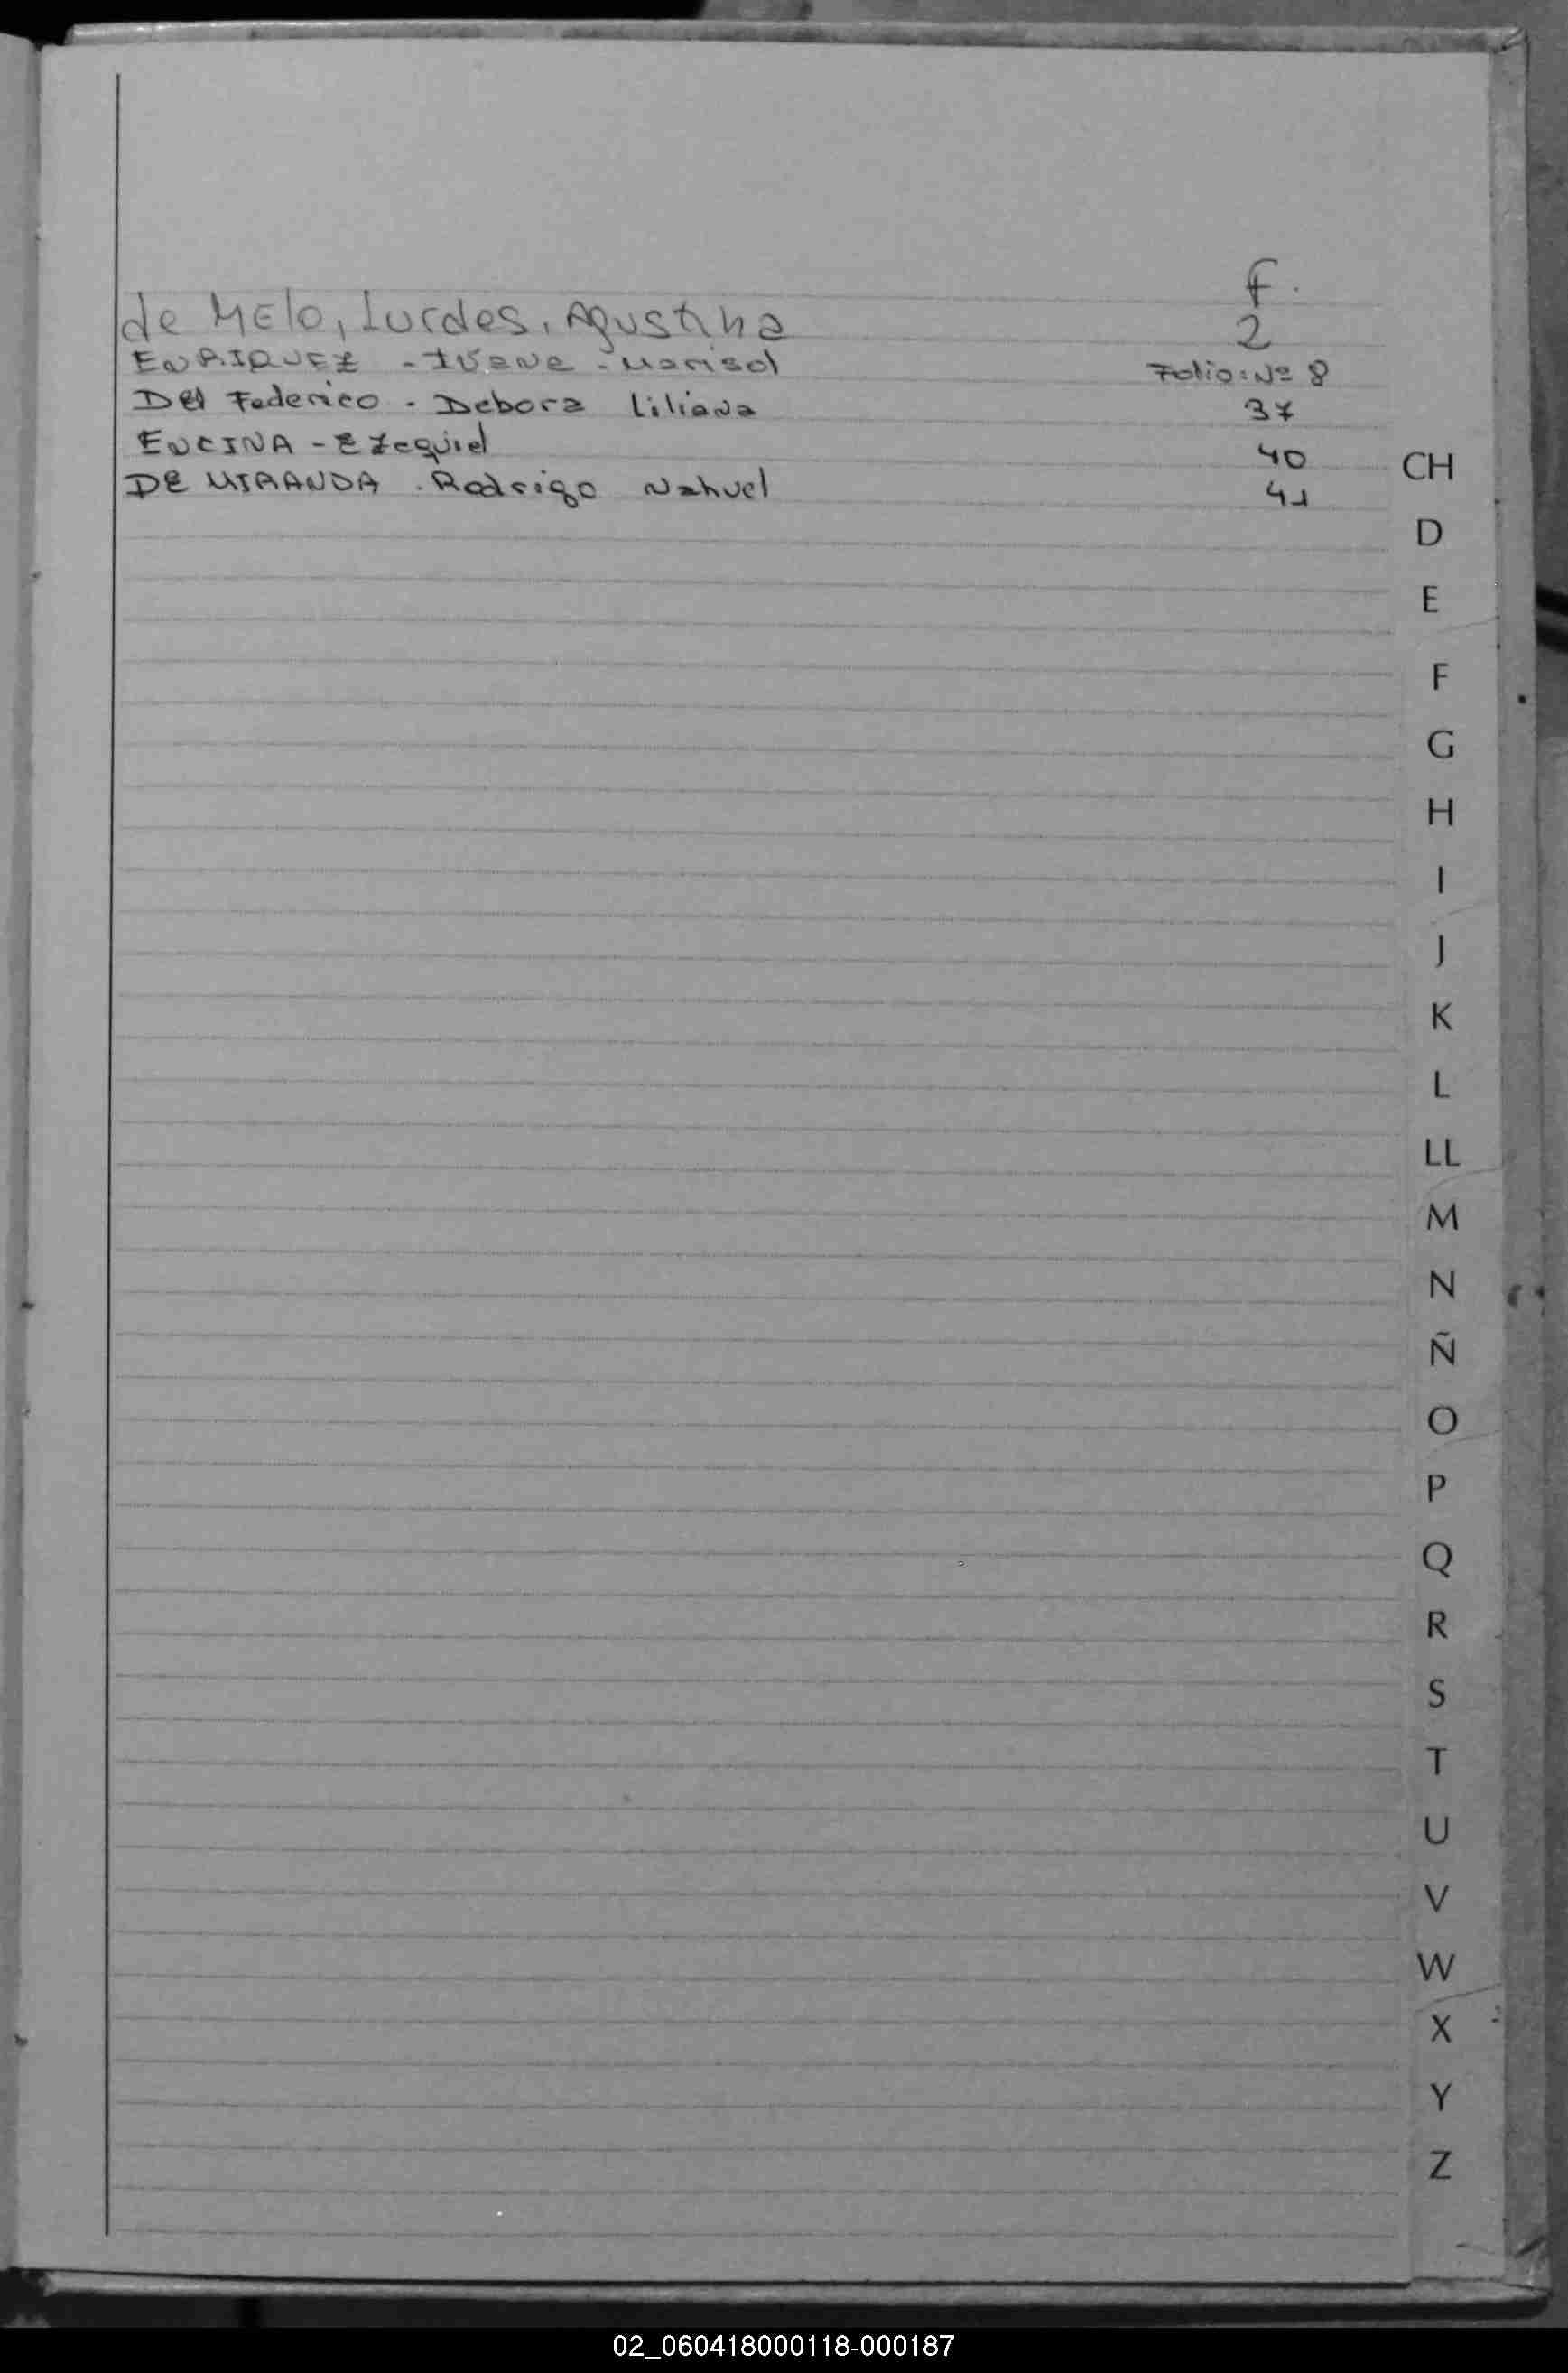 f.
de MElo, Lurdes, Agustina 2
ENRIQUEZ - Ivana - Marisol Folio: Nº 8
Del Federico - Debora Liliana 37
ENCINA - Ezequiel 40
DE MIRANDA . Rodrigo Nahuel 41
CH
D
E
F
G
H
I
J
K
L
LL
M
N
Ñ
O
P
Q
R
S
T
U
V
W
X
Y
Z
02_060418000118-000187